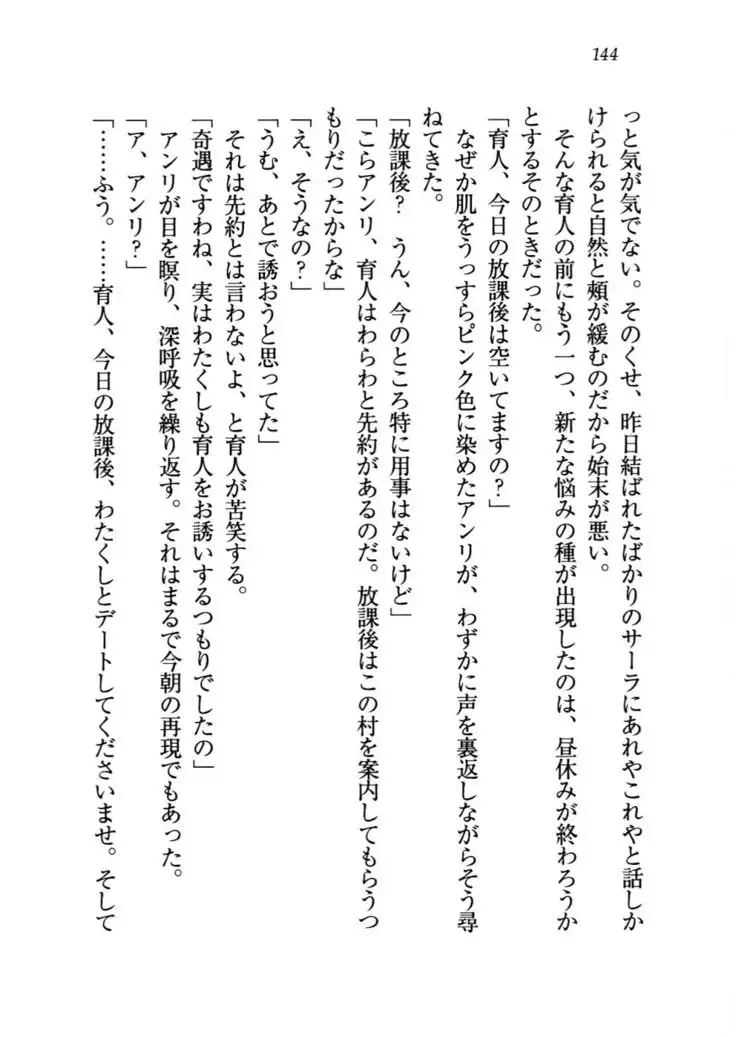 144
っと気が気でない。そのくせ、昨日結ばれたばかりのサーラにあれやこれやと話しか
けられると自然と頰が緩むのだから始末が悪い。
　そんな育人の前にもう一つ、新たな悩みの種が出現したのは、昼休みが終わろうか
とするそのときだった。
「育人、今日の放課後は空いてますの？」
　なぜか肌をうっすらピンク色に染めたアンリが、わずかに声を裏返しながらそう尋
ねてきた。
「放課後？　うん、今のところ特に用事はないけど」
「こらアンリ、育人はわらわと先約があるのだ。放課後はこの村を案内してもらうつ
もりだったからな」
「え、そうなの？」
「うむ、あとで誘おうと思ってた」
　それは先約とは言わないよ、と育人が苦笑する。
「奇遇ですわね、実はわたくしも育人をお誘いするつもりでしたの」
　アンリが目を瞑り、深呼吸を繰り返す。それはまるで今朝の再現でもあった。
「ア、アンリ？」
「……ふう。……育人、今日の放課後、わたくしとデートしてくださいませ。そして